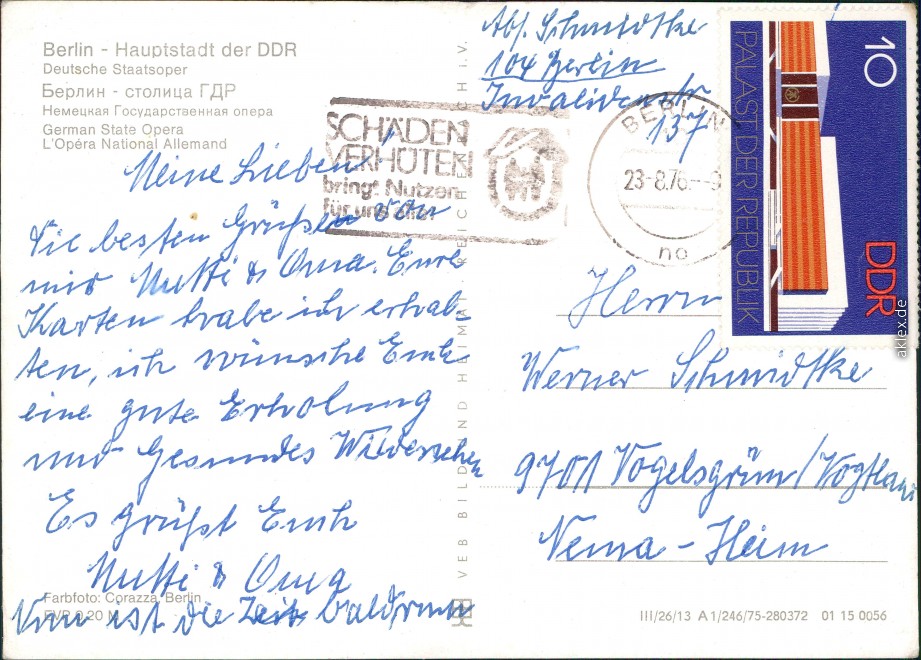 Berlin - Hauptstadt der DDR
Deutsche Staatsoper
Берлин - столица ГДР
Немецкая Государственная опера
German State Opera
L'Opéra National Allemand
Meine Lieben!
Die besten Grüße von
mir Mutti & Oma. Eure
Karten habe ich erhal-
ten, ich wünsche Euch
eine gute Erholung
und Gesundes Wiedersehen
Es grüßt Euch
Mutti & Oma
Nun ist die Zeit bald rum
Farbfoto: Corazza, Berlin
EVP 0,20 M
VEB BILD UND HEIMAT REICHENBACH I. V.
Abs. Schmidtke
104 Berlin
Invalidenstr
137
SCHÄDEN
VERHÜTEN
bringt Nutzen
für uns alle
BERLIN
23-8.76.-9
no
10
PALAST DER REPUBLIK
DDR
Herrn
Werner Schmidtke
9701 Vogelsgrün/Vogtland
Nema-Heim
III/26/13 A 1/246/75-280372 01 15 0056
aklex.de